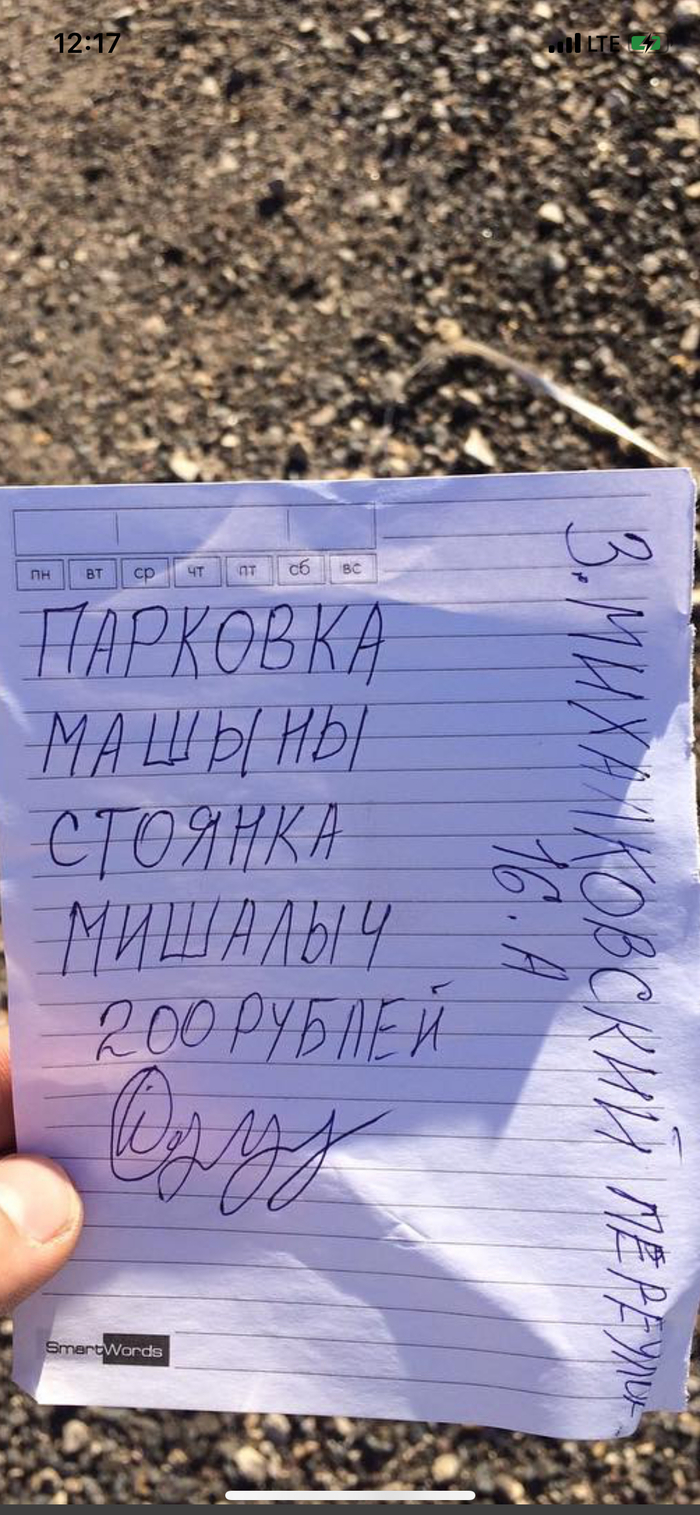 12:17
LTE
пн вт ср чт пт сб вс
ПАРКОВКА
МАШЫНЫ
СТОЯНКА
МИШАЛЫЧ
200 РУБЛЕЙ
SmartWords
3. МИХАЛКОВСКИЙ
16. А